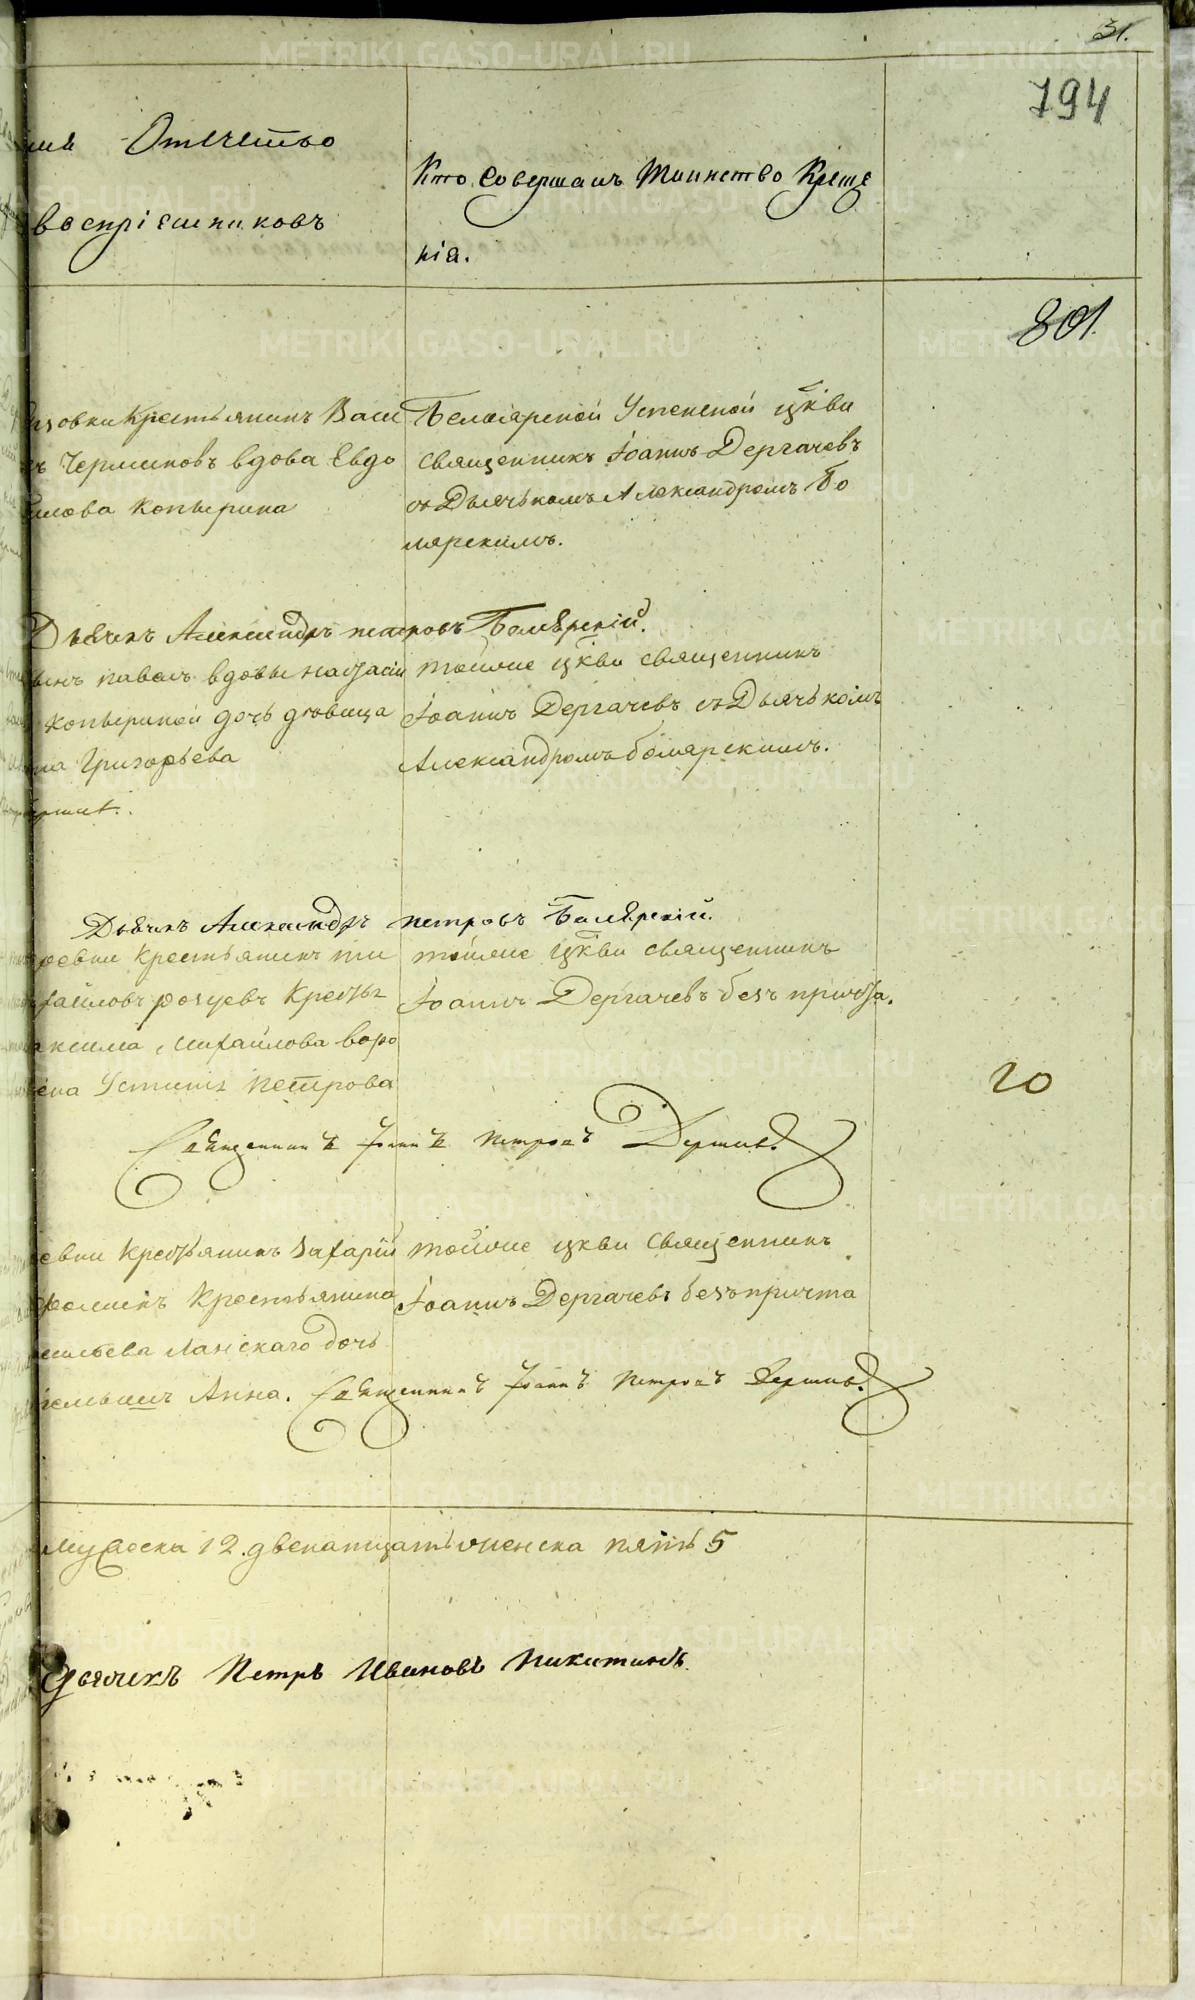 31.
794
Отечетьо
воспріемниковъ
Кто Совершалъ Таинство Креще
нія.
801.
Крестьянинъ Васи
Черминовъ вдова Евдо
Копырина
Белоярской Успенской цркви
священникъ Іоаннъ Дергачевъ
съ Дьячькомъ Александромъ Бо
лярскимъ.
Дьячикъ Александръ петровъ Болярскій.
павелъ вдовы настасіи
Копыриной дочь девица
Григорьева
тойже цркви священникъ
Іоаннъ Дергачевъ съ Дьячькомъ
Александромъ болярскимъ.
Дьячикъ Александръ петровъ Болярскій.
Крестьянинъ ти
Кресть
Михайлова воро
Устинья петрова
тойже цркви священникъ
Іоаннъ Дергачевъ безъ причта.
20
Священникъ Іоаннъ Петровъ Дергачев.
Крестьянинъ Захарій
Крестьянина
Ланскаго дочь
Анна.
тойже цркви священникъ
Іоаннъ Дергачевъ безъ причта
Священникъ Іоаннъ Петровъ Дергачев.
12. двенатцать женска пять 5
дьячекъ Петръ Ивановъ Никитинъ.
METRIKI.GASO-URAL.RU